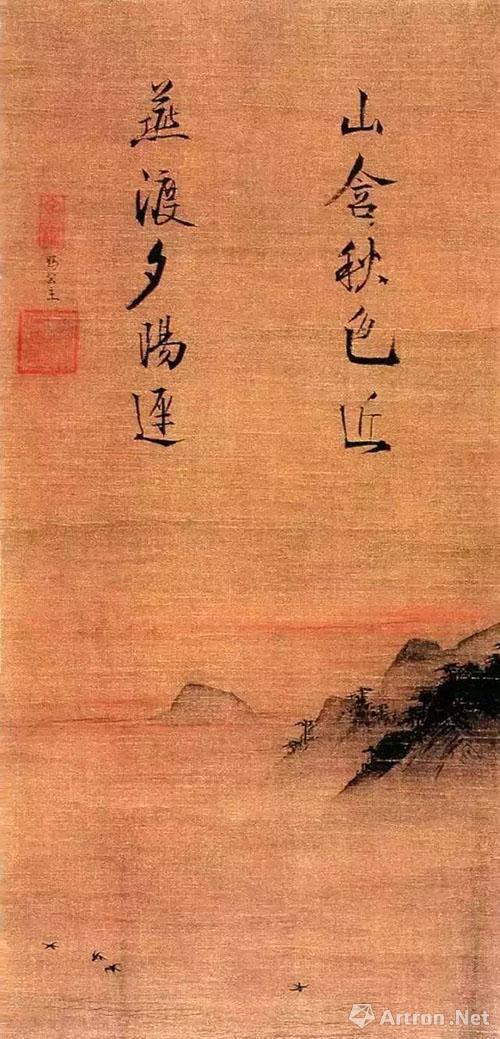 山含秋色近
燕渡夕陽遲
賜公主
Artron.Net